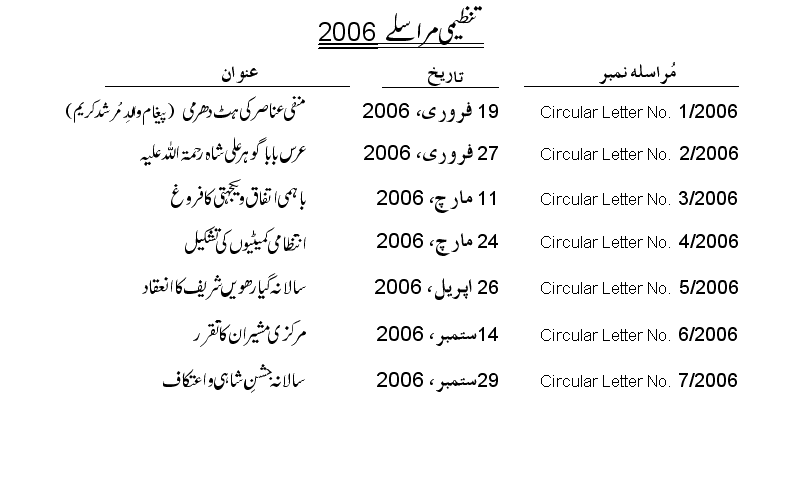 تنظیمی مراسلے 2006
مُراسلہ نمبر تاریخ عنوان
Circular Letter No. 1/2006 19 فروری، 2006 منفی عناصر کی ہٹ دھرمی (پیغام والدِ مُرشد کریم)
Circular Letter No. 2/2006 27 فروری، 2006 عرس بابا گوہر علی شاہ رحمۃ اللہ علیہ
Circular Letter No. 3/2006 11 مارچ، 2006 باہمی اتفاق و یکجہتی کا فروغ
Circular Letter No. 4/2006 24 مارچ، 2006 انتظامی کمیٹیوں کی تشکیل
Circular Letter No. 5/2006 26 اپریل، 2006 سالانہ گیارھویں شریف کا انعقاد
Circular Letter No. 6/2006 14 ستمبر، 2006 مرکزی مشیران کا تقرر
Circular Letter No. 7/2006 29 ستمبر، 2006 سالانہ جشنِ شاہی و اعتکاف